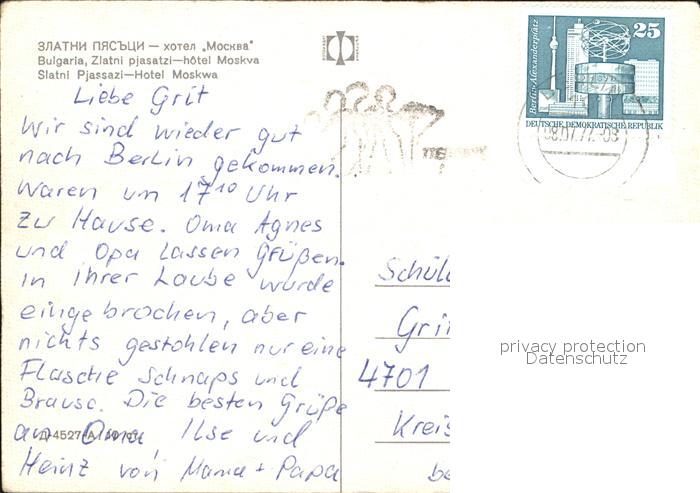 ЗЛАТНИ ПЯСЪЦИ — хотел „Москва“
Bulgaria, Zlatni pjasatzi—hôtel Moskva
Slatni Pjassazi—Hotel Moskwa
Berlin-Alexanderplatz
25
DEUTSCHE DEMOKRATISCHE REPUBLIK
Liebe Grit
Wir sind wieder gut
nach Berlin gekommen.
Waren um 17¹⁰ Uhr
zu Hause. Oma Agnes
und Opa lassen Grüßen.
In ihrer Laube wurde
eingebrochen, aber
nichts gestohlen nur eine
Flasche Schnaps und
Brause. Die besten Grüße
an Oma Ilse und
Heinz von Mama + Papa
Schül
Gri
4701
Kreis
be
privacy protection
Datenschutz